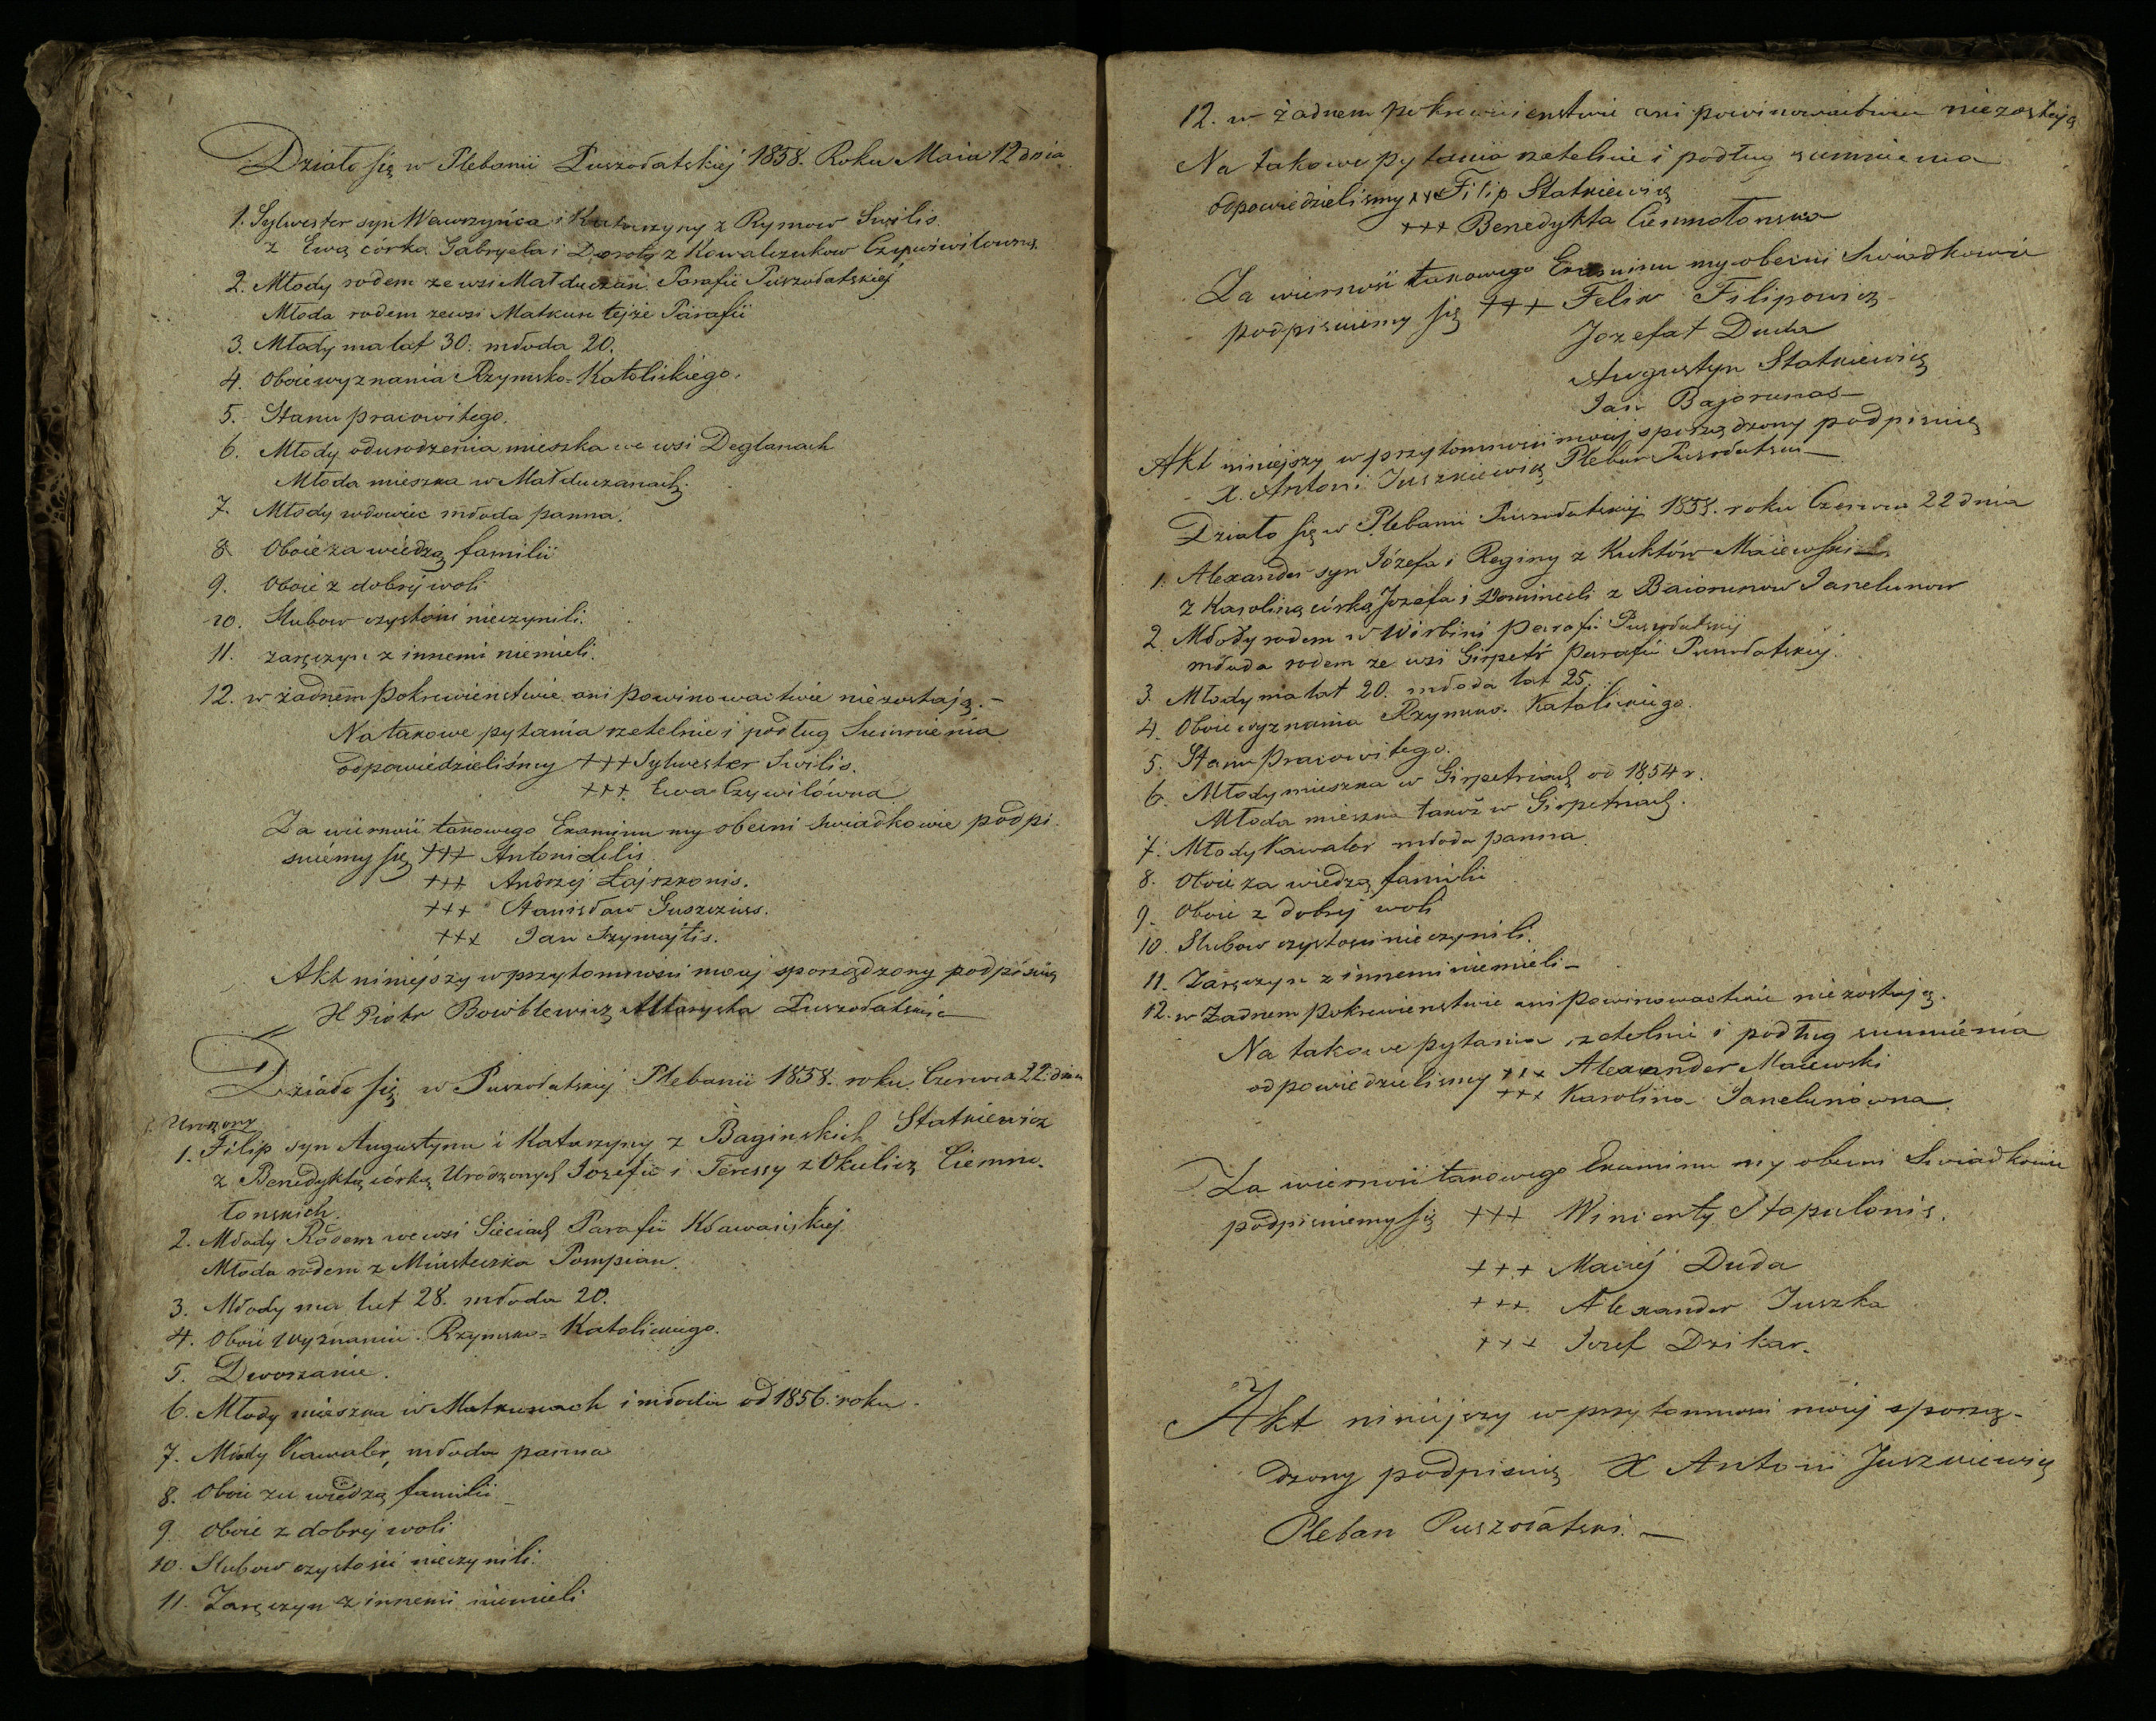 Działo się w Plebanii Puszołatskiej 1858. Roku Maia 12 dnia
1. Sylwester syn Wawrzyńca i Katarzyny z Rymow Swilis
z Ewą córką Gabryela i Doroty z Kowalczukow
2. Młody rodem ze wsi Małduczan Parafii Puszołatskiej
Młoda rodem ze wsi Matkun tejże Parafii
3. Młody ma lat 30. młoda 20.
4. Oboie wyznania Rzymsko-Katolickiego.
5. Stanu pracowitego.
6. Młody od urodzenia mieszka we wsi Deglanach
Młoda mieszka w Małduczanach.
7. Młody wdowiec młoda panna.
8 Oboie za wiedzą familii
9. Oboie z dobrej woli
10. Slubow czystości nieczynili.
11. zaręczyn z innemi niemieli.
12. w żadnem pokrewieństwie ani powinowactwie niezostają.-
Na takowe pytania rzetelnie i podług Sumnienia
odpowiedzieliśmy +++ Sylwester Swilis.
+++ Ewa Czywilówna
Za wierność takowego Examinu my obecni Swiadkowie podpi-
suiemy się +++ Antoni Lelis
+++ Andrzej Łajszkonis.
+++ Stanisław
+++ Jan Szymajtis.
Akt niniejszy w przytomności moiej sporządzony podpisuię
X Piotr Bowblewicz Altarysta Puszołatski
Działo się w Puszołatskiej Plebanii 1858. roku Czerwca 22. dnia
1. Filip syn Augustyna i Katarzyny z Baginskich Statkiewicz
z Benedyktą córką Urodzonych Jozefa i Teressy z Okulicz Ciemno-
łonskich.
2. Młody Rodem we wsi Sieciach Parafii
Młoda rodem z Miasteczka Pompian.
3. Młody ma lat 28. młoda 20.
4. Oboie wyznania Rzymsko-Katolickiego.
5. Dworzanie.
6. Młody mieszka w Matkunach i młoda od 1856. roku.
7. Młody Kawaler, młoda panna
8. Oboie za wiedzą familii
9. Oboie z dobrej woli
10. Slubow czystości nieczynili.
11. Zaręczyn z innemi niemieli
12. w żadnem pokrewienstwie ani powinowactwie niezostają
Na takowe pytania rzetelnie i podług sumnienia
odpowiedzielismy +++ Filip Statkiewicz
+++ Benedykta Ciemnołonska
Za wierność takowego Examinu my obecni Swiadkowie
podpisuiemy się +++ Felix Filipowicz
Jozefat Duda
Augustyn Statkiewicz
Jan Bajorunas
Akt niniejszy w przytomności moiej sporządzony podpisuię
X. Antoni Juszkiewicz Pleban Puszołatski
Działo się w Plebanii Puszołatskiej 1858. roku Czerwca 22 dnia
1. Alexander syn Józefa i Reginy z Kuktów Maiewski
z Karoliną córką Jozefa i Dominceli z Baiorunow Janelunow
2. Młody rodem w Wirbini Parafii Puszołatskiej
młoda rodem ze wsi Girpetr Parafii Puszołatskiej.
3. Młody ma lat 20. młoda lat 25.
4. Oboie wyznania Rzymsko-Katolickiego.
5. Stanu Pracowitego.
6. Młody mieszka w Girpetriach od 1854 r.
Młoda mieszka takoż w Girpetriach.
7. Młody Kawaler młoda panna
8. Oboie za wiedzą familii
9. Oboie z dobrej woli
10. Slubow czystości nieczynili.
11. Zaręczyn z innemi niemieli-
12. w Zadnem pokrewienstwie ani powinowactwie niezostają.
Na takowe pytania rzetelnie i podług sumnienia
odpowiedzielismy +++ Alexander Maiewski
+++ Karolina Janelunówna
Za wierność takowego Examinu my obecni Swiadkowie
podpisuiemy się +++ Wincenty Stapulonis.
+++ Maciej Duda
+++ Alexander Juszka
+++ Jozef Dzikar.
Akt niniejszy w przytomności moiej sporzą-
dzony podpisuię X Antoni Juszkiewicz
Pleban Puszołatski.